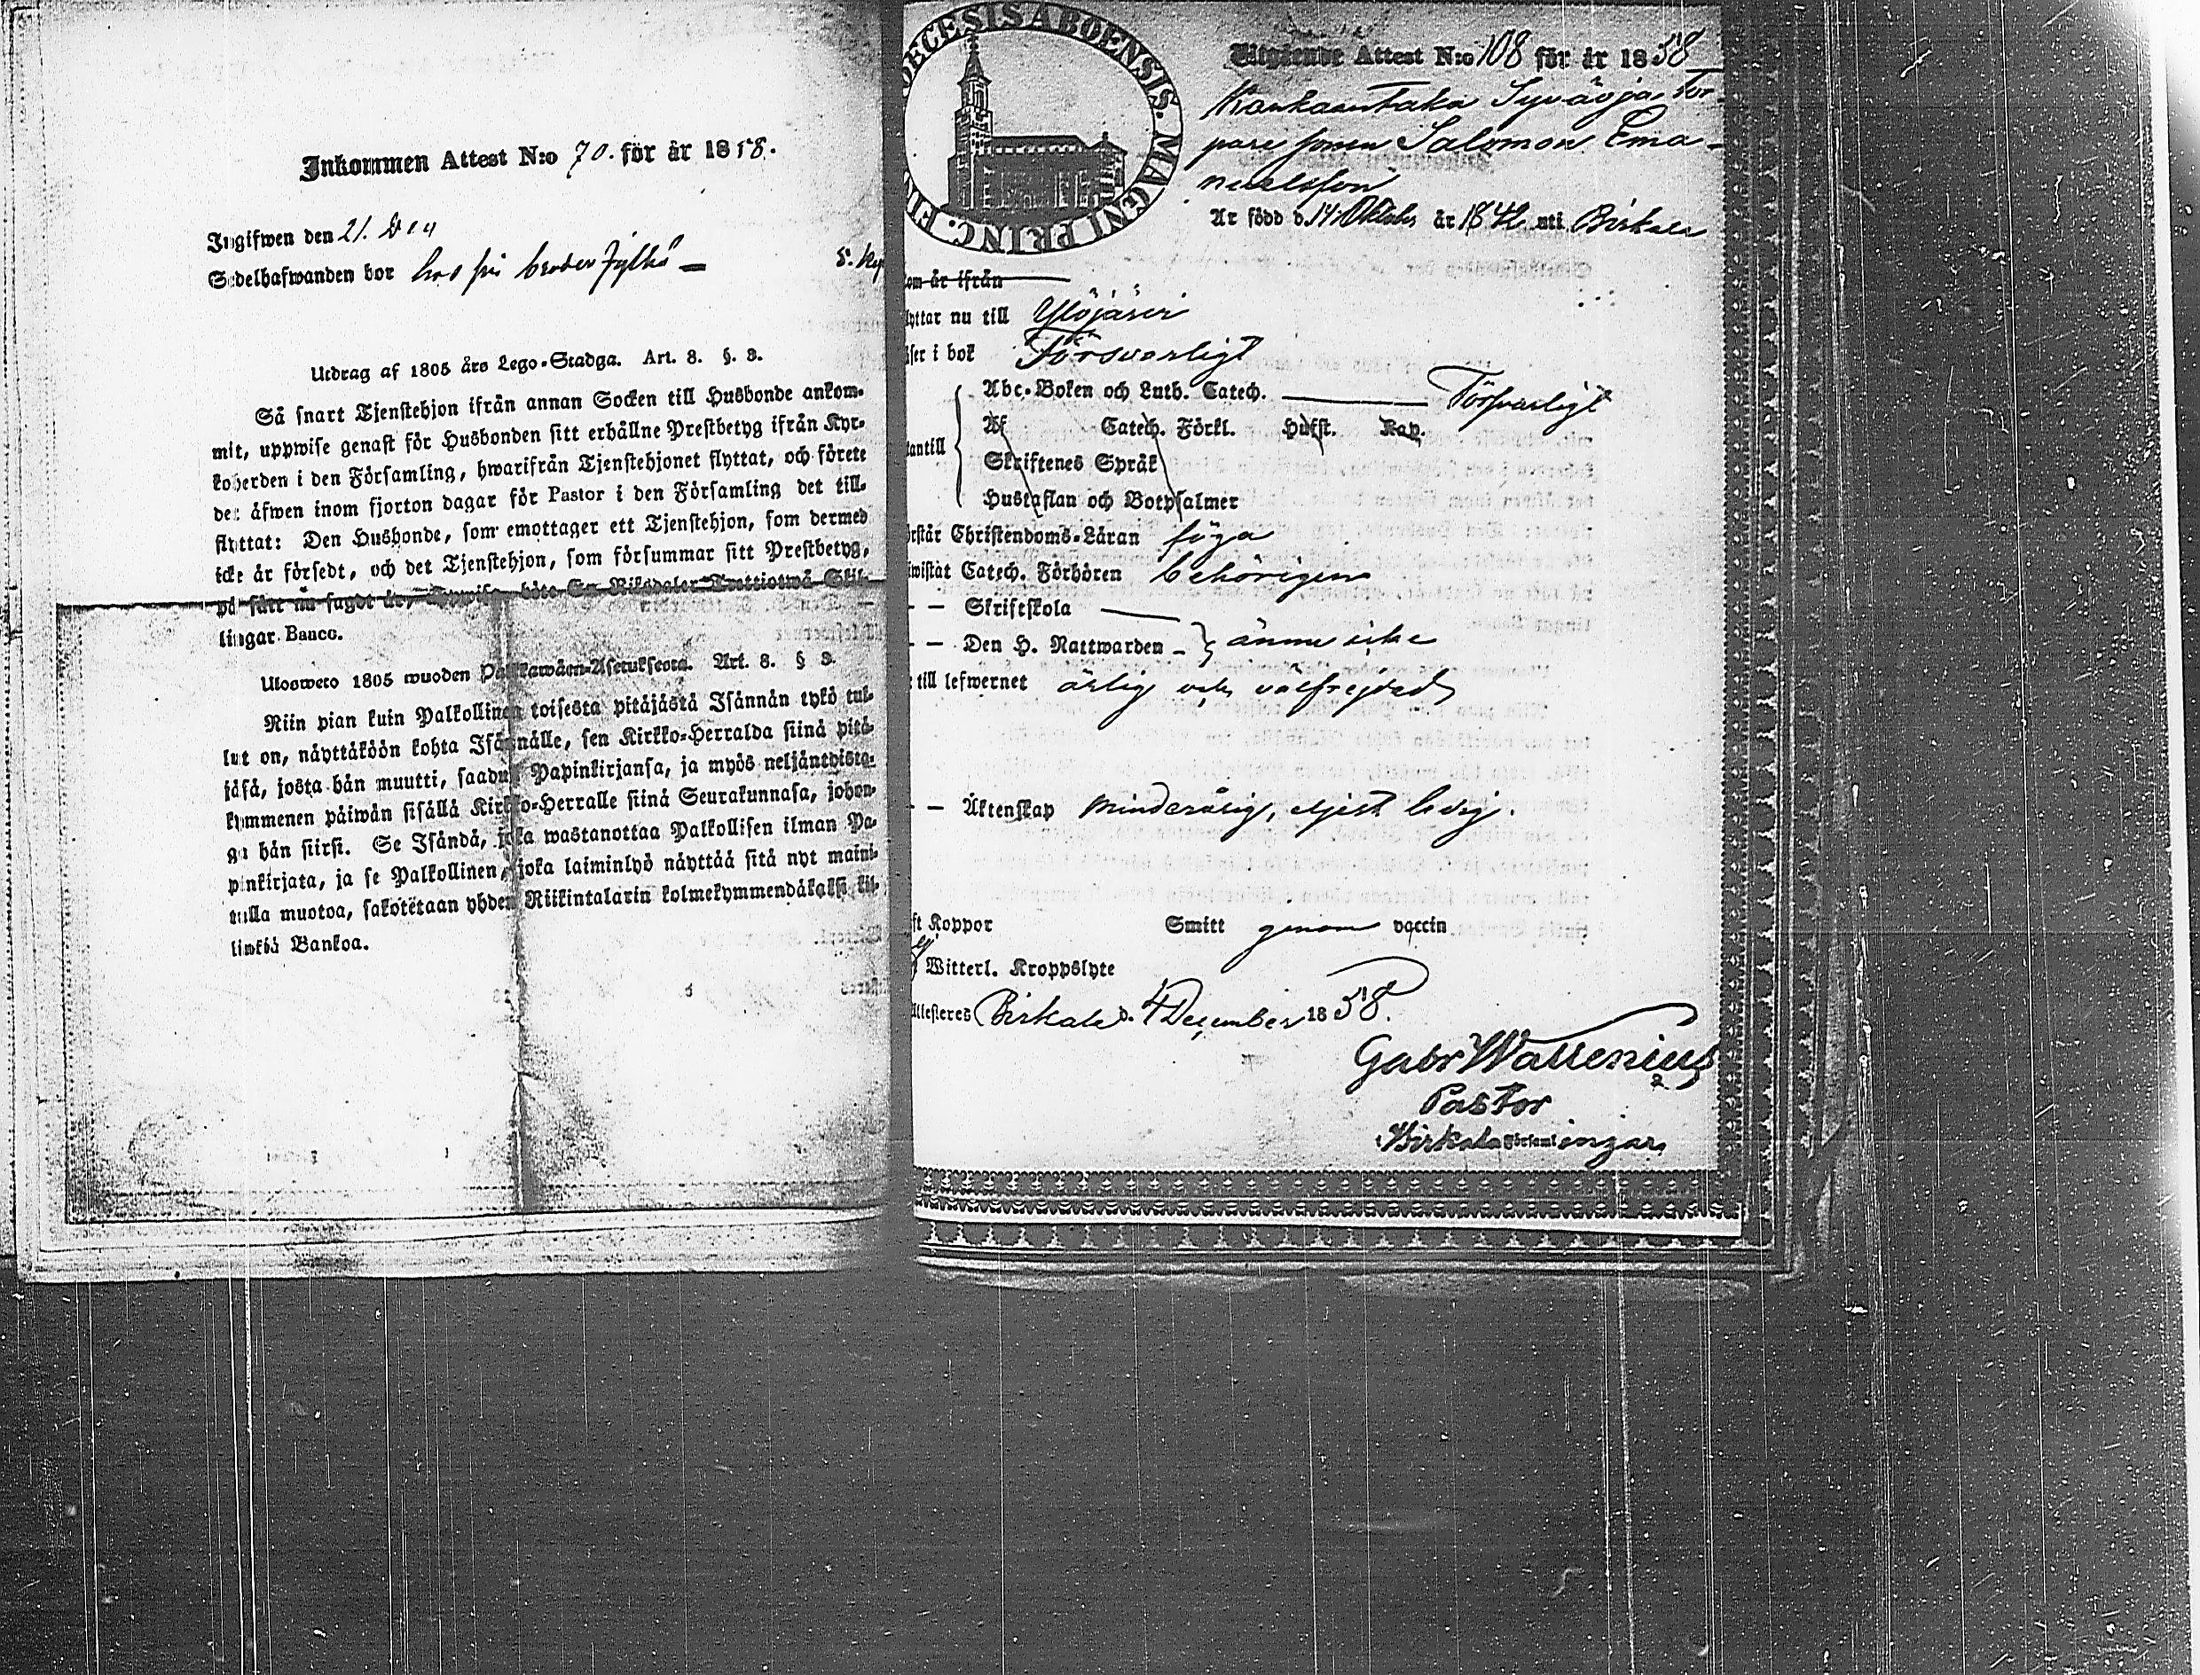 Inkommen Attest N:o 70. för år 1858.
Ingifwen den 21. Dec
Sedelhafwanden bor hos sin broder Jylhä
Utdrag af 1805 års Lego-Stadga. Art. 8. §. 3.
Så snart Tjenstehjon ifrån annan Socken till Husbonde ankom-
mit, uppwise genast för Husbonden sitt erhållne Prestbetyg ifrån Kyr-
koherden i den Församling, hwarifrån Tjenstehjonet flyttat, och förete
det äfwen inom fjorton dagar för Pastor i den Församling det till-
flyttat: Den Husbonde, som emottager ett Tjenstehjon, som dermed
icke är försedt, och det Tjenstehjon, som försummar sitt Prestbetyg,
på sätt nu sagdt är, böte En Riksdaler Trettiotwå Skil-
lingar Banco.
Ulosweto 1805 wuoden Palkkawäen-Asetuksesta. Art. 8. § 3.
Niin pian kuin Palkollinen toisesta pitäjästä Isännän tykö tul-
lut on, näyttäköön kohta Isännälle, sen Kirkko-Herralda siinä pitä-
jäsä, josta hän muutti, saadun Papinkirjansa, ja myös neljäntoista-
kymmenen päiwän sisällä Kirkko-Herralle siinä Seurakunnasa, johon-
ga hän siirsi. Se Isändä, joka wastanottaa Palkollisen ilman Pa-
pinkirjata, ja se Palkollinen, joka laiminlyö näyttää sitä nyt maini-
tulla muotoa, sakotetaan yhden Riikintalarin kolmekymmendäkaksi kil-
linkiä Bankoa.
DIOECESIS ABOENSIS. MAGNI PRINC. FIN
Utgående Attest N:o 108 för år 1858
Kankaantaka Syväoja Tor-
pare sonen Salomon Ema-
nuelsson
Är född d. 14 Oktober år 1842 uti Birkala
om är ifrån
lyttar nu till Ylöjärvi
äser i bok Försvarligt
Abc-Boken och Luth. Catech. Försvarligt
Af Catech. Förkl. Husft. Kap.
tantill
Skriftenes Språk
Hustaflan och Botpsalmer
rstår Christendoms-Läran föga
iwistat Catech. Förhören behörigen
— — Skriftskola
— — Den H. Nattwarden } ännu icke
till lefwernet ärlig och välfrejdad
— — Äktenskap minderårig, utgist ledig.
ft Koppor Smitt genom vaccin
ej Witterl. Kroppslyte
Attesteres Birkala d. 4 December 1858.
Gabr Wallenius
Pastor
i Birkala Församlingar